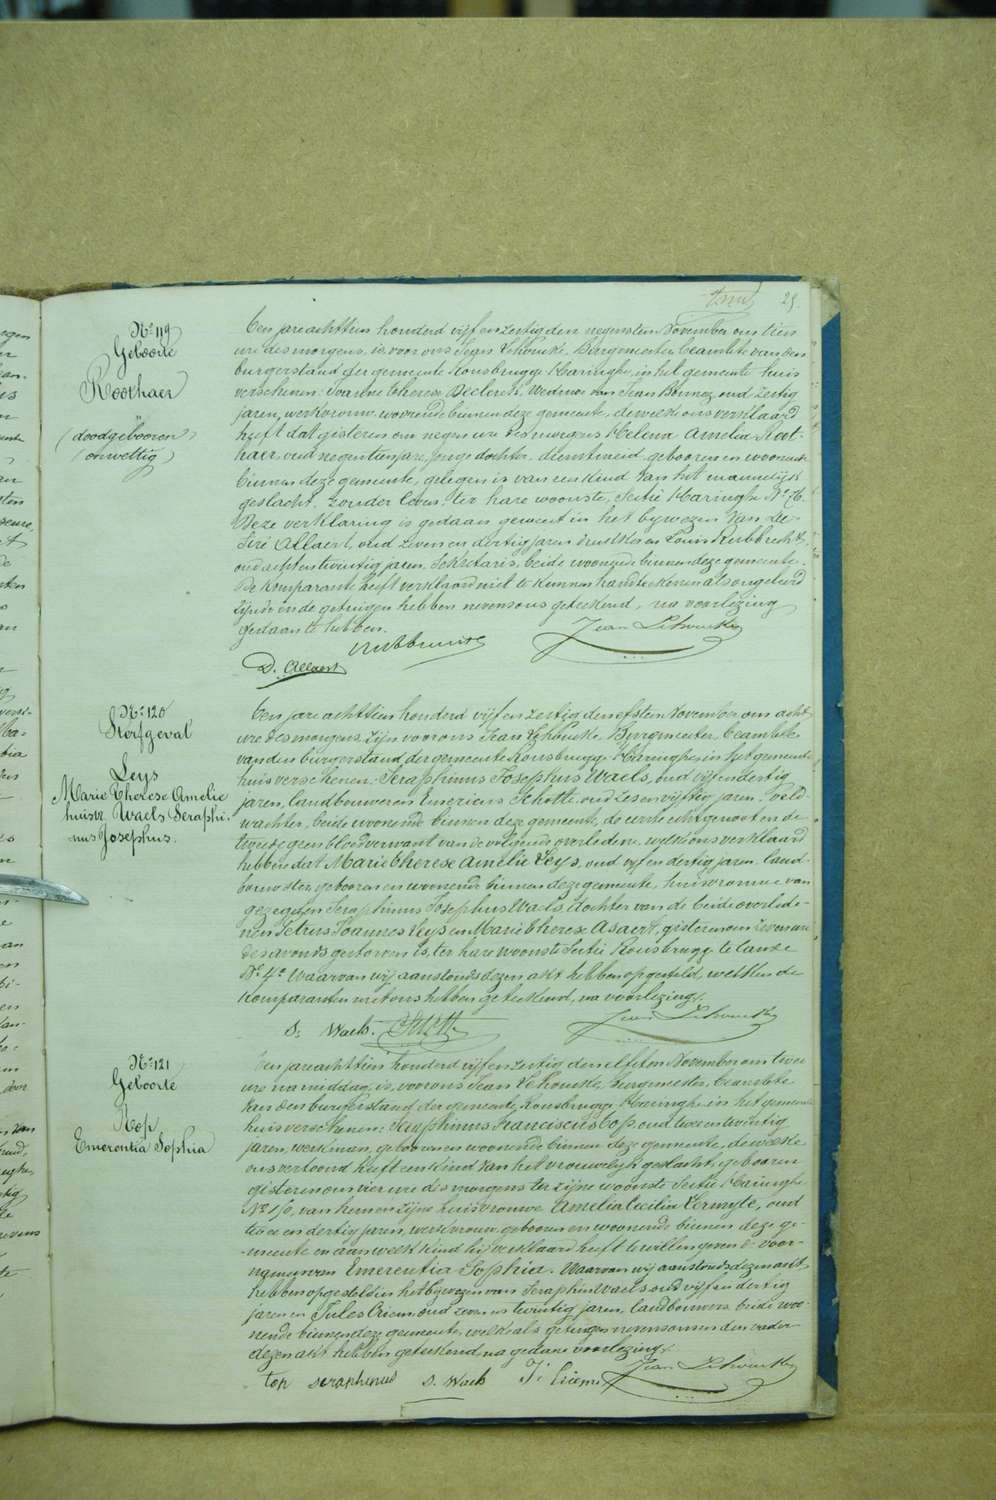 25.
Nr 119
Geboorte
Roothaer
(doodgebooren)
(onwettig)
Een jare achttien honderd vijf en zestig den negensten November om tien
ure des morgens, is voor ons Jean Lehoucke, Burgmeester beambte van den
burgerstand der gemeente Rousbrugge Haringhe, in het gemeente huis
verschenen: Therese Declerck, Weduwe van Jean, oud zestig
jaren, werkvrouw, woonende binnen deze gemeente, dewelke ons verklaard
heeft dat gisteren om negen ure des morgens Helena Amelia Root-
haer, oud negentien jare, jonge dochter, dienstmeid, gebooren en woonende
binnen deze gemeente, gelegen is van een kind van het mannelijk
geslacht, zonder leven, ter hare woonste, Sectie Haringhe Nr 76.
Deze verklaring is gedaan geweest in het bywezen van De-
siré Allaert, oud zeven en dertig jaren en Louis Rubbrecht,
oud acht en twintig jaren, Sekretaris, beide woonende binnen deze gemeente.
De komparante heeft verklaard niet te kunnen handteekenen als ongeleerd
zijnde en de getuigen hebben nevens ons geteekend, na voorlezing
gedaan te hebben.
Rubbrecht Jean Lehoucke
D. Allaert
Nr 120
Sterfgeval
Leys
Marie Therese Amelie
huisvr. Waels Seraphi-
nus Josephus.
Een jare achttien honderd vijf en zestig den elfsten November om acht
ure des morgens, zijn voor ons Jean Lehoucke Burgmeester, beambte
van den burgerstand der gemeente Rousbrugge Haringhe in het gemeente
huis verschenen: Seraphinus Josephus Waels, oud vijf en dertig
jaren, landbouwer en Emericus Schotte, oud zes en vijftig jaren, veld-
wachter, beide woonende binnen deze gemeente, de eerste echtgenoot en de
tweede geen bloedverwant van de volgende overledene, welke ons verklaard
hebben dat Marie Therese Amelie Leys, oud vijf en dertig jaren, land-
bouwster gebooren en woonende binnen deze gemeente, huisvrouwe van
gezegden Seraphinus Josephus Waels, dochter van de beide overlede-
nen Petrus Joannes Leys en Marie Therese Asaert, gisteren om zes ure
des avonds gestorven is, ter hare woonste Sectie Rousbrugge te lande
Nr 4. Waarvan wij aanstonds dezen akt hebben opgesteld, welken de
komparanten met ons hebben geteekend, na voorlezing.
S. Waels. Schotte Jean Lehoucke
Nr 121
Geboorte
Top
Emerentia Sophia
Een jare achttien honderd vijf en zestig den elfsten November om twee
ure na middag, is, voor ons Jean Lehoucke, Burgmeester, beambte
van den burgerstand der gemeente Rousbrugge Haringhe in het gemeente
huis verschenen: Seraphinus Franciscus Top, oud twee en twintig
jaren, werkman, gebooren en woonende binnen deze gemeente, dewelke
ons vertoond heeft een kind van het vrouwelijk geslacht, gebooren
gisteren om vier ure des morgens ter zijne woonste Sectie Haringhe
Nr 110, van hem en zijne huisvrouwe Amelia Cecilia Vermyle, oud
twee en dertig jaren, werkvrouw, gebooren en woonende binnen deze ge-
-meente en aan welk kind hij verklaard heeft te willen geven de voor-
namen van Emerentia Sophia. Waarvan wij aanstonds dezen akt
hebben opgesteld in het bijwezen van Seraphin Waels oud vijf en dertig
jaren en Jules oud zeven en twintig jaren, landbouwers, beide woo-
nende binnen deze gemeente, welke als getuigen nevens ons en den vader
dezen akt hebben geteekend na gedane voorlezing.
Top seraphinus S. Waels Jean Lehoucke